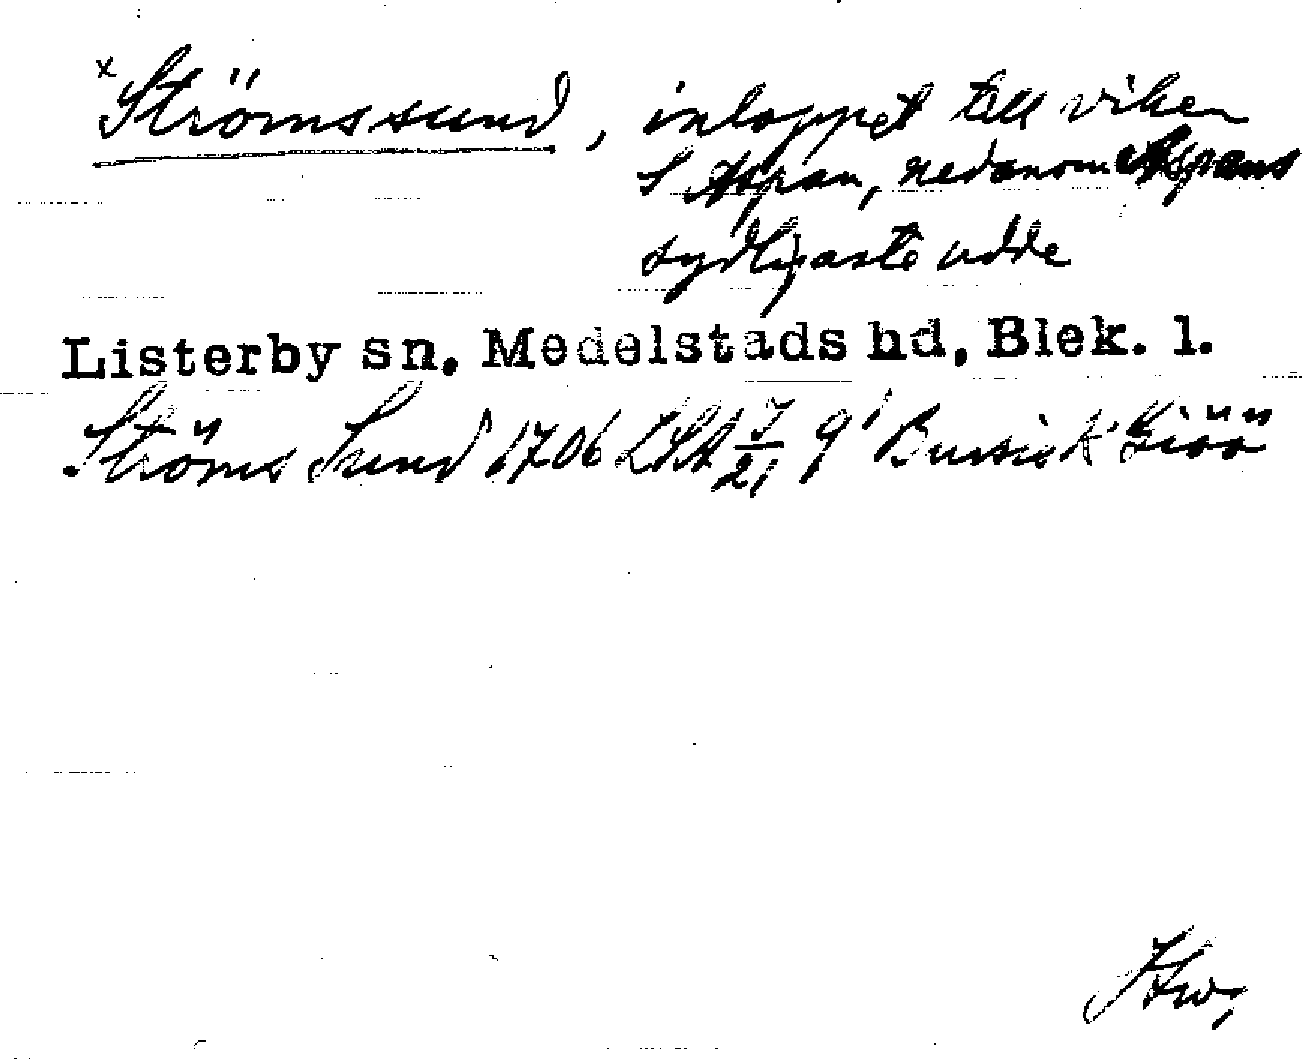 x Strömssund, inloppet till viken
S Aspan, nedanom Aspans
sydligaste udde
Listerby sn. Medelstads hd, Blek. l.
Ströms Sund 1706 LSA 7/21 q¹